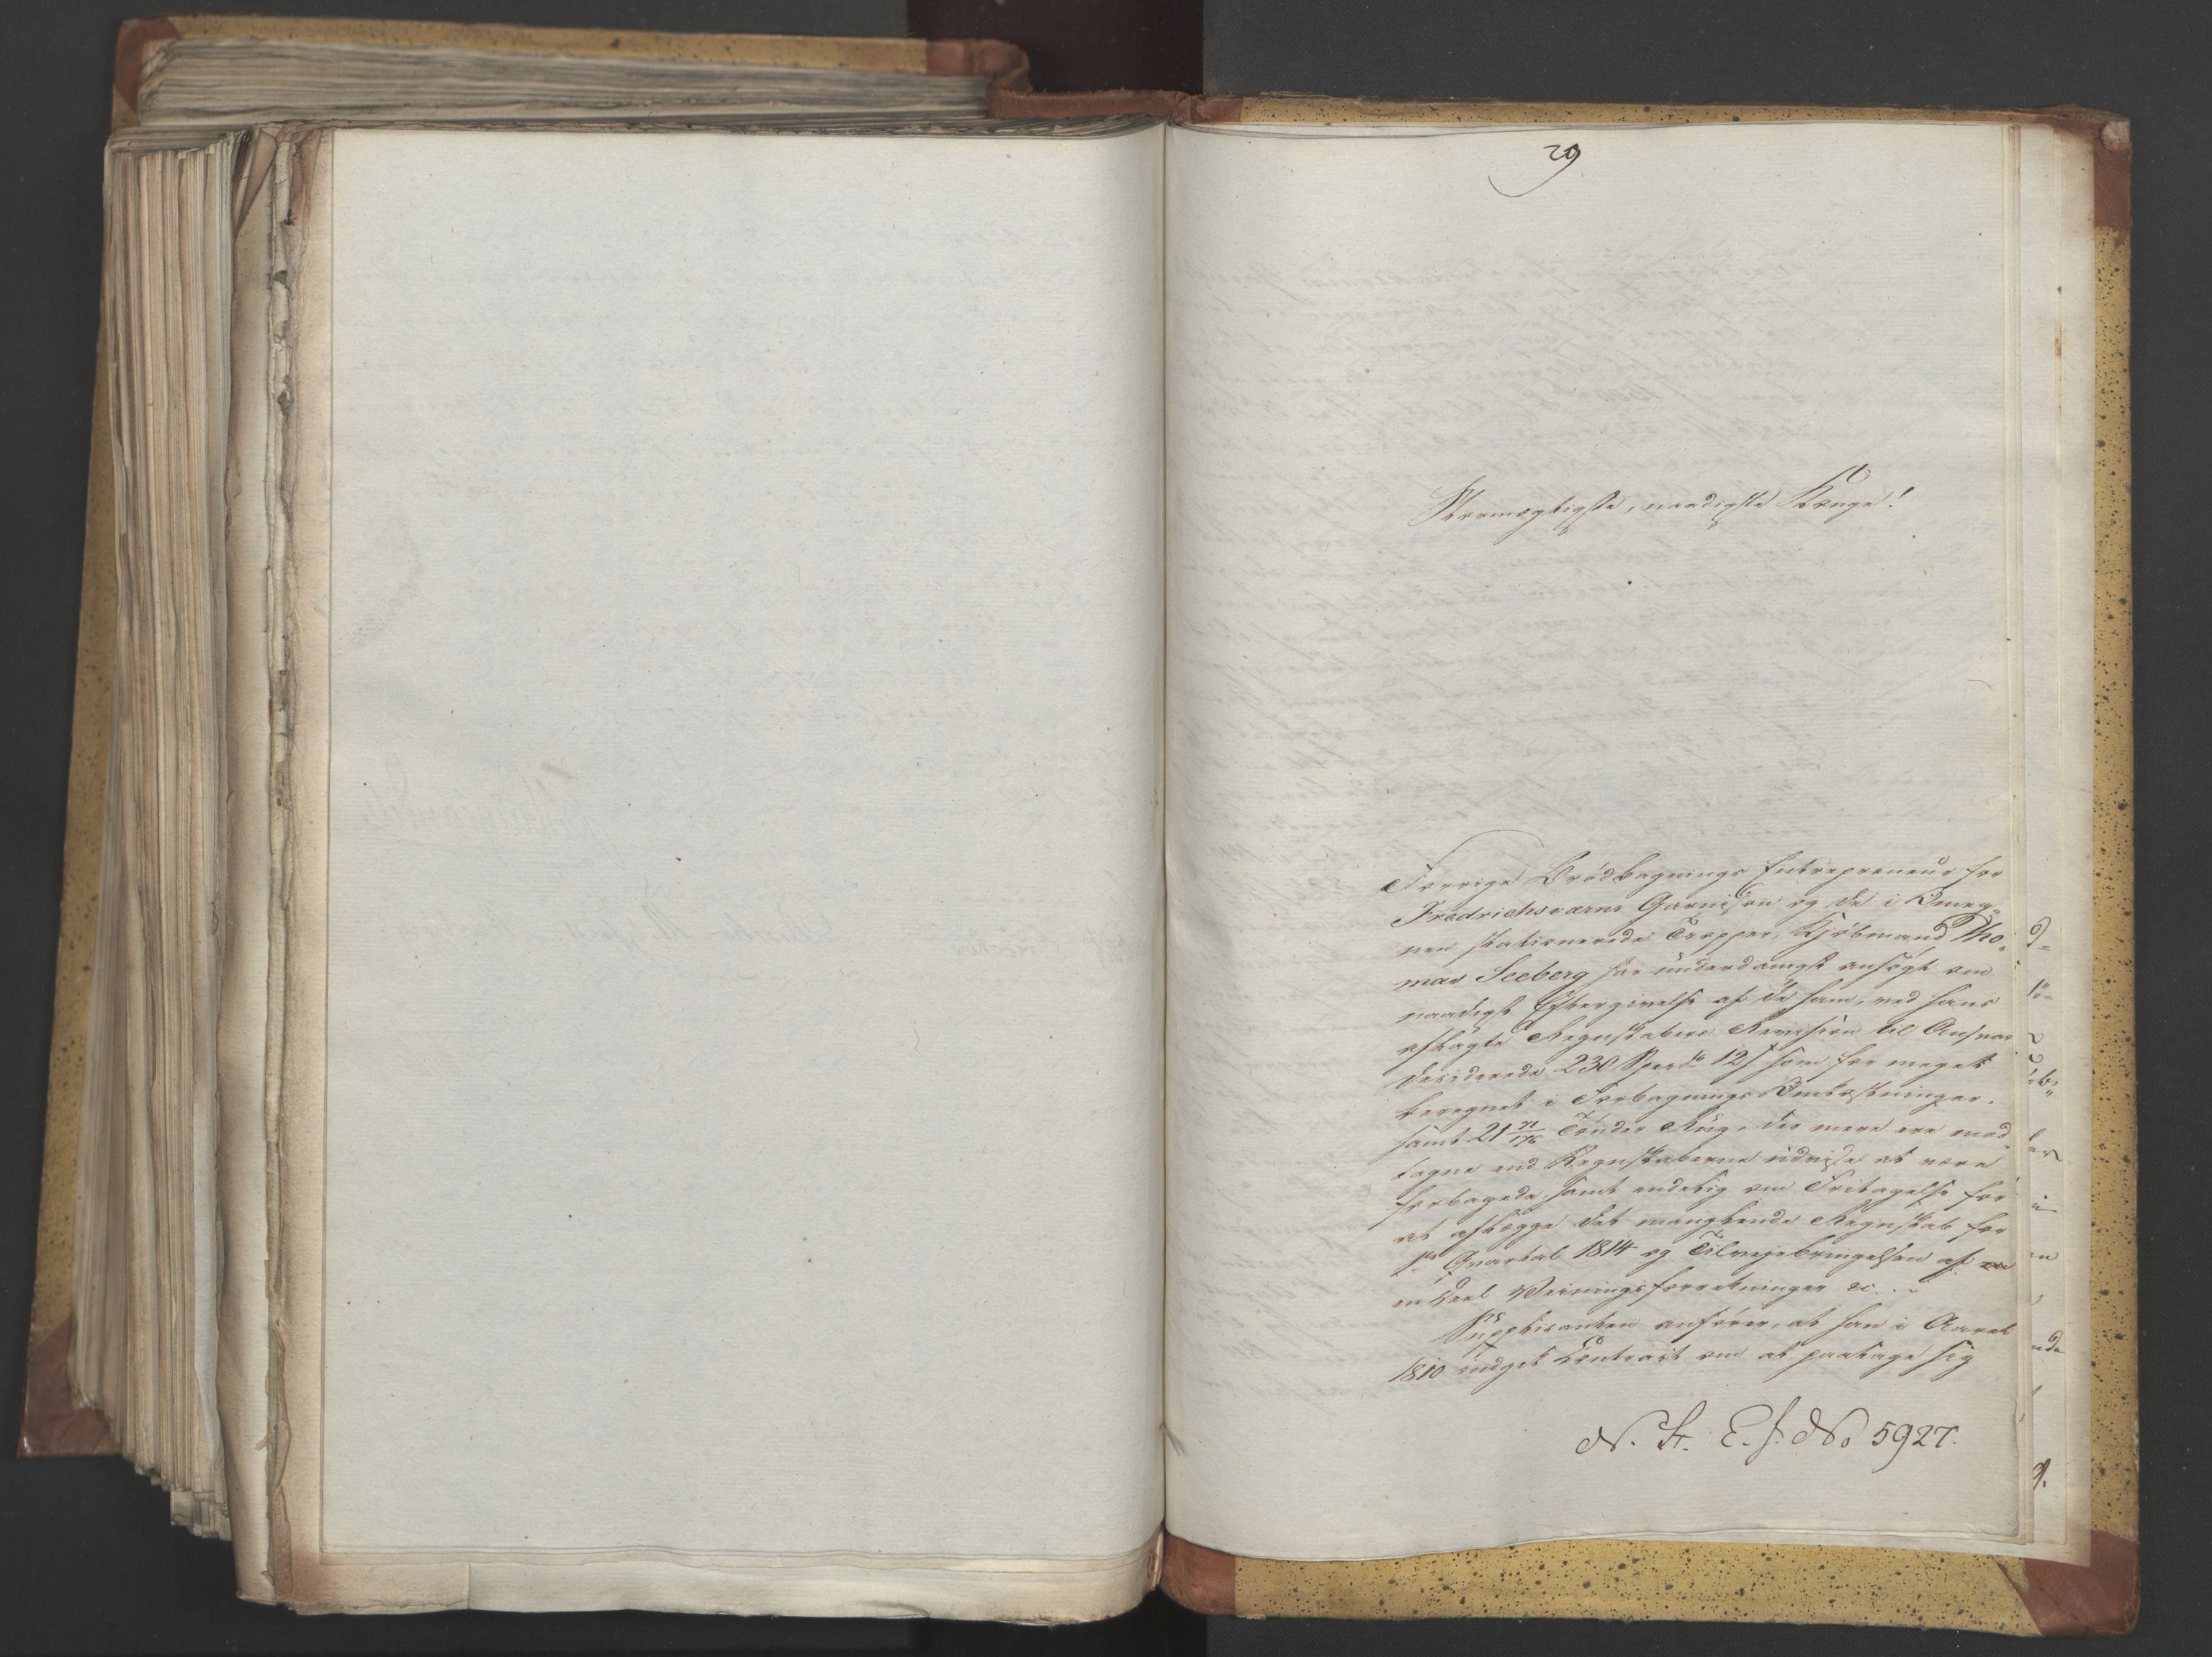 29
Stormægtigste, naadigste Konge!
Forrige Brødbagnings Entrepreneur for
Fredrichsværns Garnison og de i Omeg-
nen stationerede Tropper, Kjøbmand Tho-
mas Seeberg har underdanigst ansøgt om
naadigst Eftergivelse af de ham, ved hans
aflagte Regnskabers Revision til Ansvar
deciderede 230 Spdlr 12 s som for meget
beregnet i Forbagnings Omkostninger,
samt 21 71/176 Tønder Rug, der mere ere mod-
tagne end Regnskaberne udvise at være
forbagede samt endelig om Fritagelse for
at aflægge det manglende Regnskab for
1ste Qvartal 1814 og Tilvejebringelsen af
en Deel Veiningsforretninger &c.
Supplicanten anfører, at han i Aaret
1810 indgik Contract om at paatage sig
N. St. E. J. No 5927.